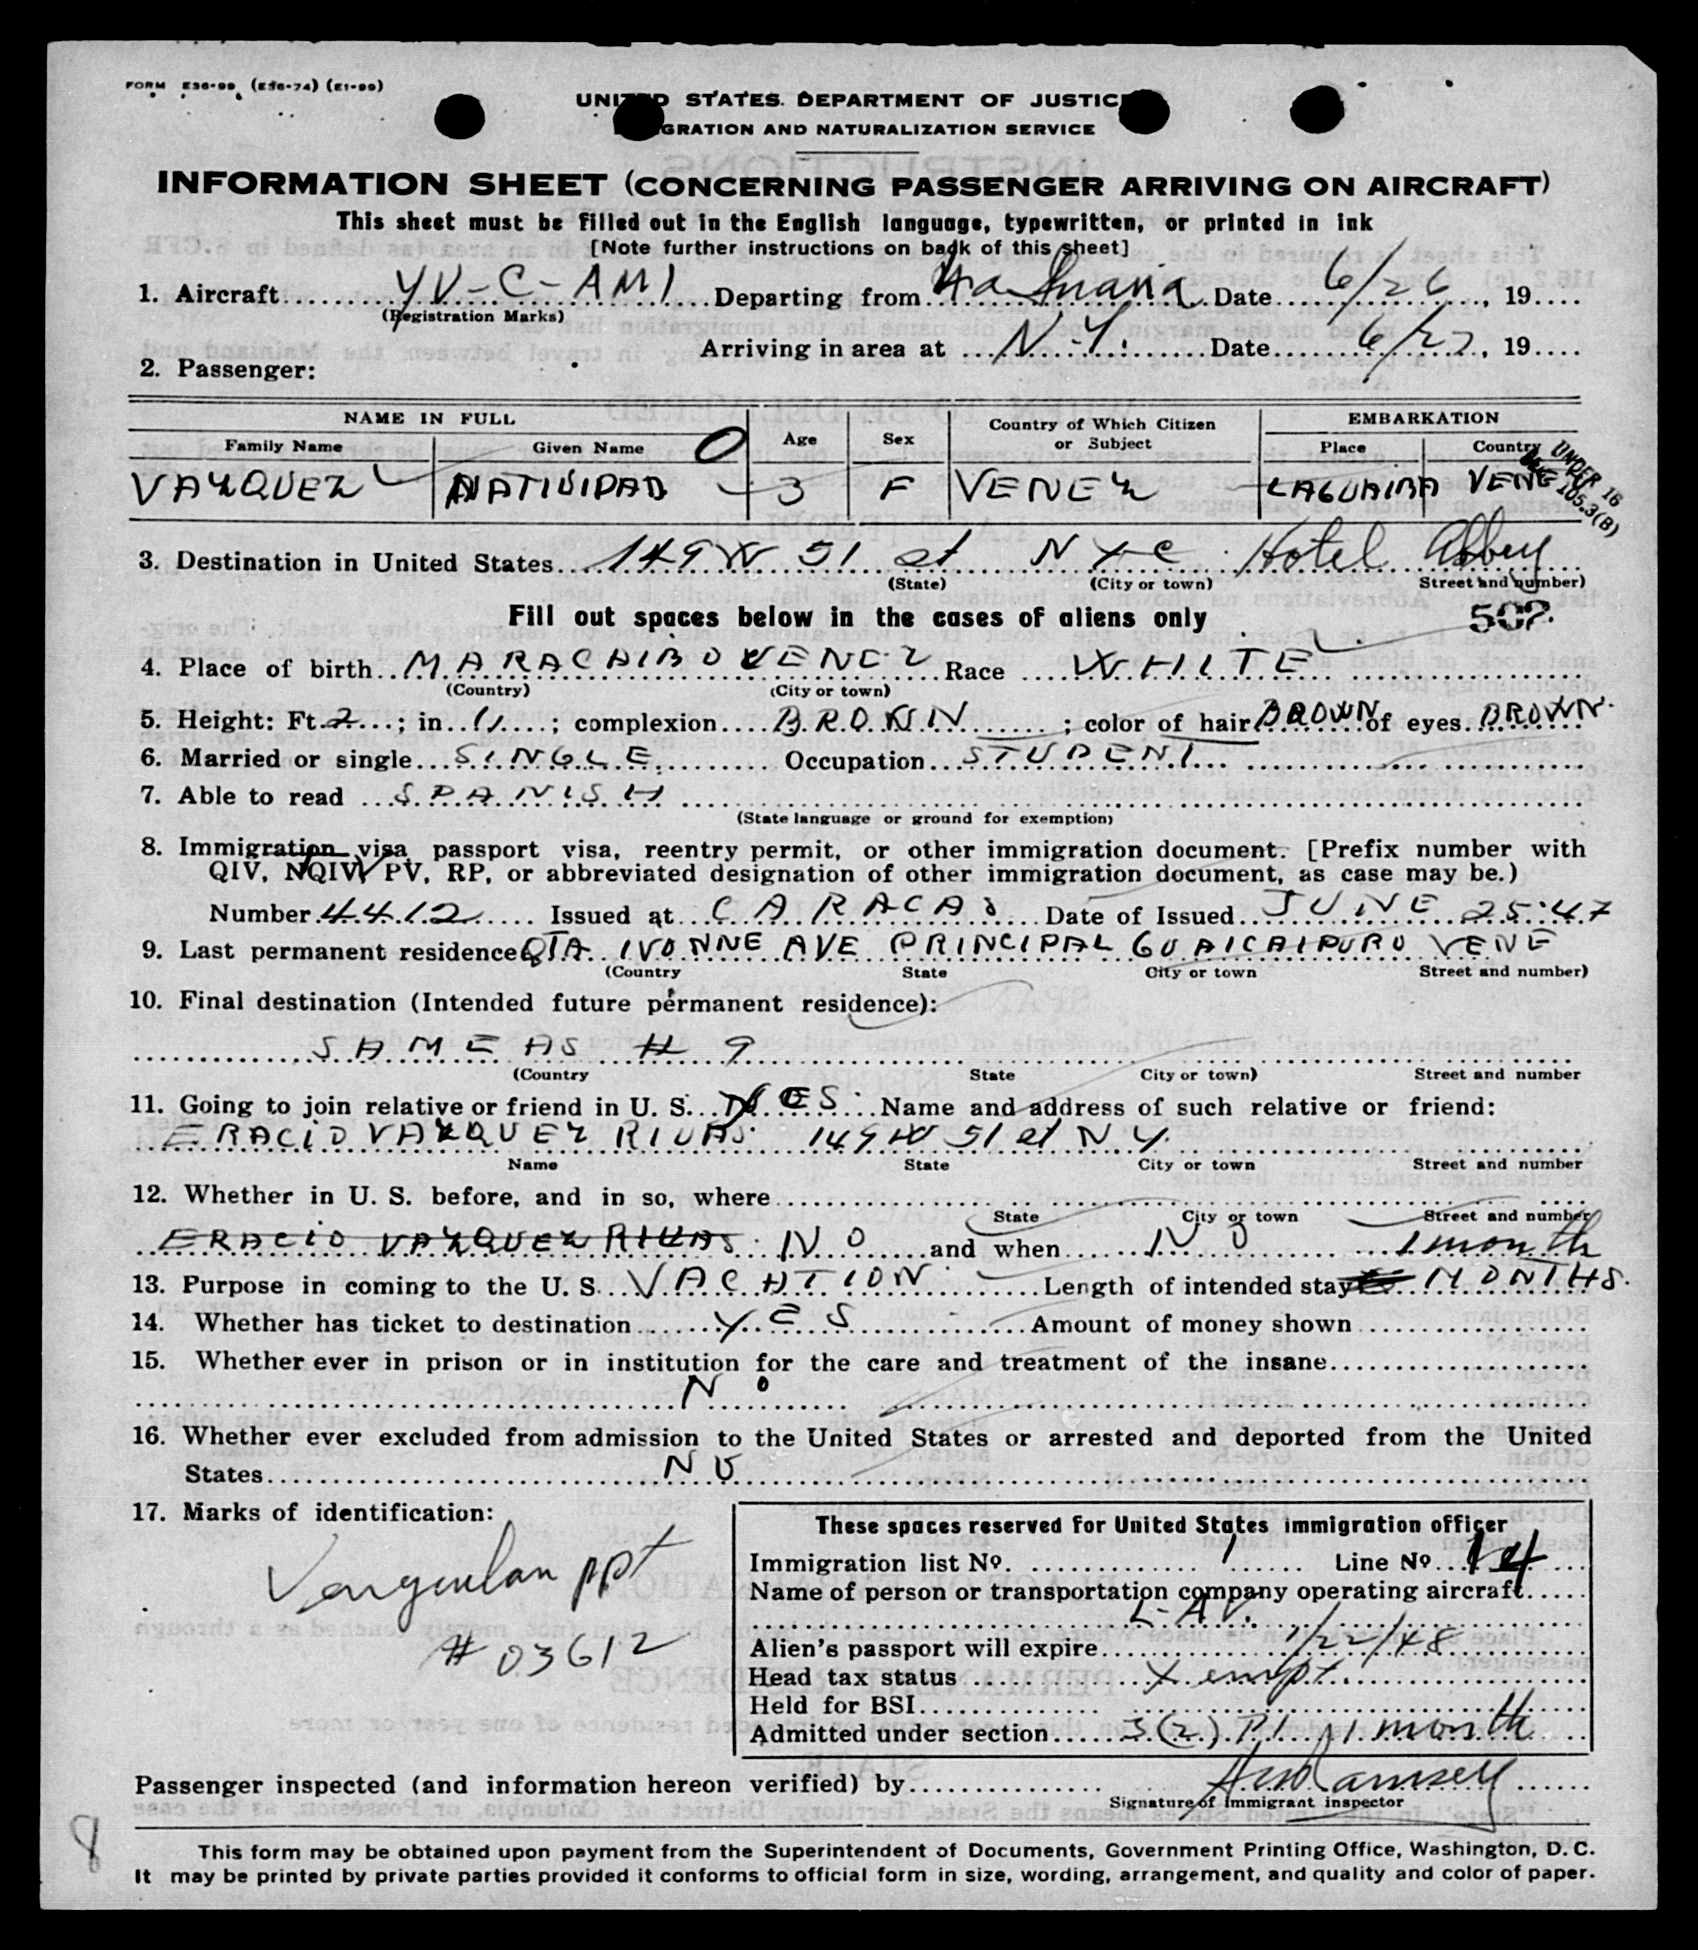 FORM E36-99 (E36-74) (E1-99)
UNITED STATES DEPARTMENT OF JUSTICE
IMMIGRATION AND NATURALIZATION SERVICE
INFORMATION SHEET (CONCERNING PASSENGER ARRIVING ON AIRCRAFT)
This sheet must be filled out in the English language, typewritten, or printed in ink
[Note further instructions on back of this sheet]
1. Aircraft YV-C-AMI Departing from La Guaria Date 6/26, 19
(Registration Marks)
Arriving in area at N.Y. Date 6/27, 19
2. Passenger:
NAME IN FULL Age Sex Country of Which Citizen or Subject EMBARKATION
Family Name Given Name Place Country
VAZQUEZ NATIVIDAD 3 F VENEZ LAGUAIRA VENE
UNDER 16
105.3(B)
3. Destination in United States 149 W 51 st NYC Hotel Abbey
(State) (City or town) Street and number)
Fill out spaces below in the cases of aliens only 502
4. Place of birth MARACAIBO VENEZ Race WHITE
(Country) (City or town)
5. Height: Ft. 2; in 11; complexion BROWN; color of hair BROWN of eyes BROWN
6. Married or single SINGLE Occupation STUDENT
7. Able to read SPANISH
(State language or ground for exemption)
8. Immigration visa, passport visa, reentry permit, or other immigration document. [Prefix number with
QIV, NQIV, PV, RP, or abbreviated designation of other immigration document, as case may be.)
Number 4412 Issued at CARACAS Date of Issued JUNE 25-47
9. Last permanent residence QTA IVONNE AVE PRINCIPAL GUAICAIPURO VENE
(Country State City or town Street and number)
10. Final destination (Intended future permanent residence):
SAME AS # 9
(Country State City or town) Street and number
11. Going to join relative or friend in U. S. YES Name and address of such relative or friend:
ERACIO VAZQUEZ RIVAS 149 W 51 st N Y.
Name State City or town Street and number
12. Whether in U. S. before, and in so, where
State City or town Street and number
ERACIO VAZQUEZ RIVAS NO and when NO 1 month
13. Purpose in coming to the U. S. VACATION Length of intended stay MONTHS.
14. Whether has ticket to destination YES Amount of money shown
15. Whether ever in prison or in institution for the care and treatment of the insane
No
16. Whether ever excluded from admission to the United States or arrested and deported from the United
States NO
17. Marks of identification:
Venezuelan ppt
# 03612
These spaces reserved for United States immigration officer
Immigration list No. 1 Line No. 14
Name of person or transportation company operating aircraft
L-A-V.
Alien's passport will expire 1/22/48
Head tax status Xempt
Held for BSI
Admitted under section 3(2) P1 1 month
Passenger inspected (and information hereon verified) by Ramsey
Signature of immigrant inspector
8
This form may be obtained upon payment from the Superintendent of Documents, Government Printing Office, Washington, D. C.
It may be printed by private parties provided it conforms to official form in size, wording, arrangement, and quality and color of paper.